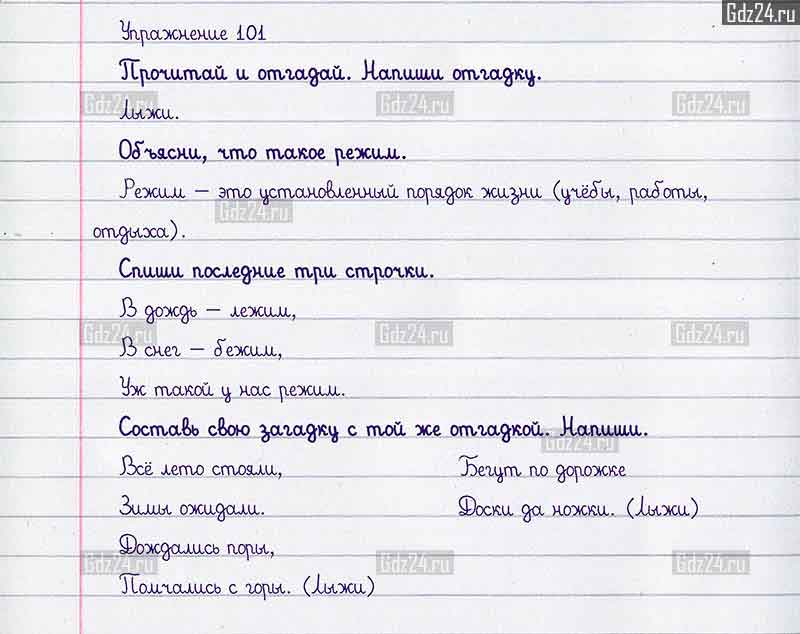 Gdz24.ru
Упражнение 101
Прочитай и отгадай. Напиши отгадку.
Gdz24.ru Gdz24.ru Gdz24.ru
Лыжи.
Объясни, что такое режим.
Режим – это установленный порядок жизни (учёбы, работы,
Gdz24.ru
отдыха).
Спиши последние три строчки.
В дождь – лежим,
Gdz24.ru Gdz24.ru Gdz24.ru
В снег – бежим,
Уж такой у нас режим.
Составь свою загадку с той же отгадкой. Напиши.
Gdz24.ru
Всё лето стояли,
Зимы ожидали.
Дождались поры,
Gdz24.ru Gdz24.ru Gdz24.ru
Помчались с горы. (Лыжи)
Бегут по дорожке
Доски да ножки. (Лыжи)